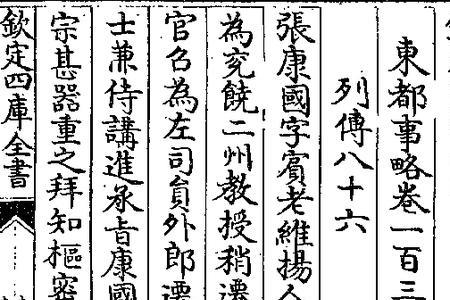 東都事略卷一百三
列傳八十六
張康國字賓老維揚人
為兖饒二州教授稍遷
官名為左司員外郎遷
士兼侍講進承旨康國
宗甚器重之拜知樞密
欽定四庫全書